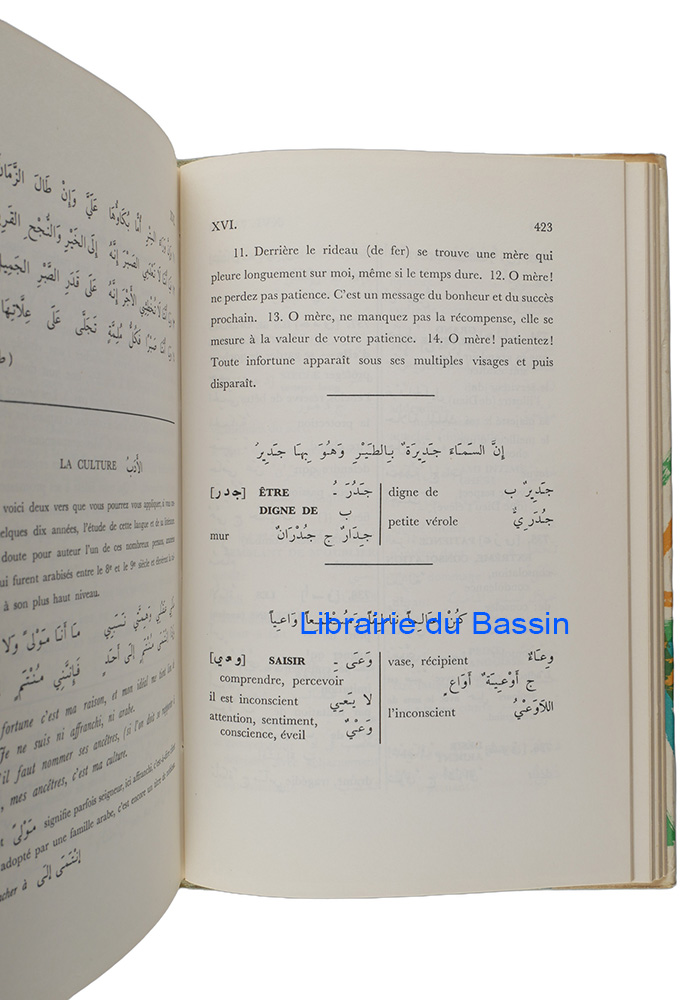 عَلَيَّ وَإِنْ طَالَ الزَّمَان
إِلَى الخَيْرِ وَالنُّجْحِ القَرِي
عَلَى قَدَرِ الصَّبْرِ الجَمِيل
تَجَلَّى عَلَى عِلَّاتِهَا
LA CULTURE الأَدَبُ
voici deux vers que vous pourrez vous appliquer, si vous
elques dix années, l'étude de cette langue et de sa
doute pour auteur l'un de ces nombreux persans, anciens
ui furent arabisés entre le 8e et le 9e siècle et
à son plus haut niveau.
مَا أَنَا مَوْلىً وَلَا
فَإِنَّنِي مُنْتَمٍ
fortune c'est ma raison, et mon idéal
Je ne suis ni affranchi, ni arabe.
'il faut nommer ses ancêtres, (si l'on doit se
, mes ancêtres, c'est ma culture.
مَوْلىً signifie parfois seigneur, ici affranchi, c'est-à-dire
adopté par une famille arabe, c'est encore un titre de
cher à إِنْتَمَى إِلَى
XVI. 423
11. Derrière le rideau (de fer) se trouve une mère qui
pleure longuement sur moi, même si le temps dure. 12. O mère!
ne perdez pas patience. C'est un message du bonheur et du succès
prochain. 13. O mère, ne manquez pas la récompense, elle se
mesure à la valeur de votre patience. 14. O mère! patientez!
Toute infortune apparaît sous ses multiples visages et puis
disparaît.
إِنَّ السَمَاءَ جَدِيرَةٌ بِالطَيْرِ وَهُوَ بِهَا جَدِيرُ
[جدر] ÊTRE جَدُرَ ـُ
DIGNE DE بِ
mur جِدَارٌ ج جُدْرَانٌ
digne de جَدِيرٌ بِ
petite vérole جُدَرِيٌّ
كُنْ
Librairie du Bassin
[وعي] SAISIR وَعَى ـِ
comprendre, percevoir
il est inconscient لا يَعِي
attention, sentiment, وَعْيٌ
conscience, éveil
vase, récipient وِعَاءٌ
ج أَوْعِيَةٌ أَوَاعٍ
l'inconscient اللاَّوَعْيُ